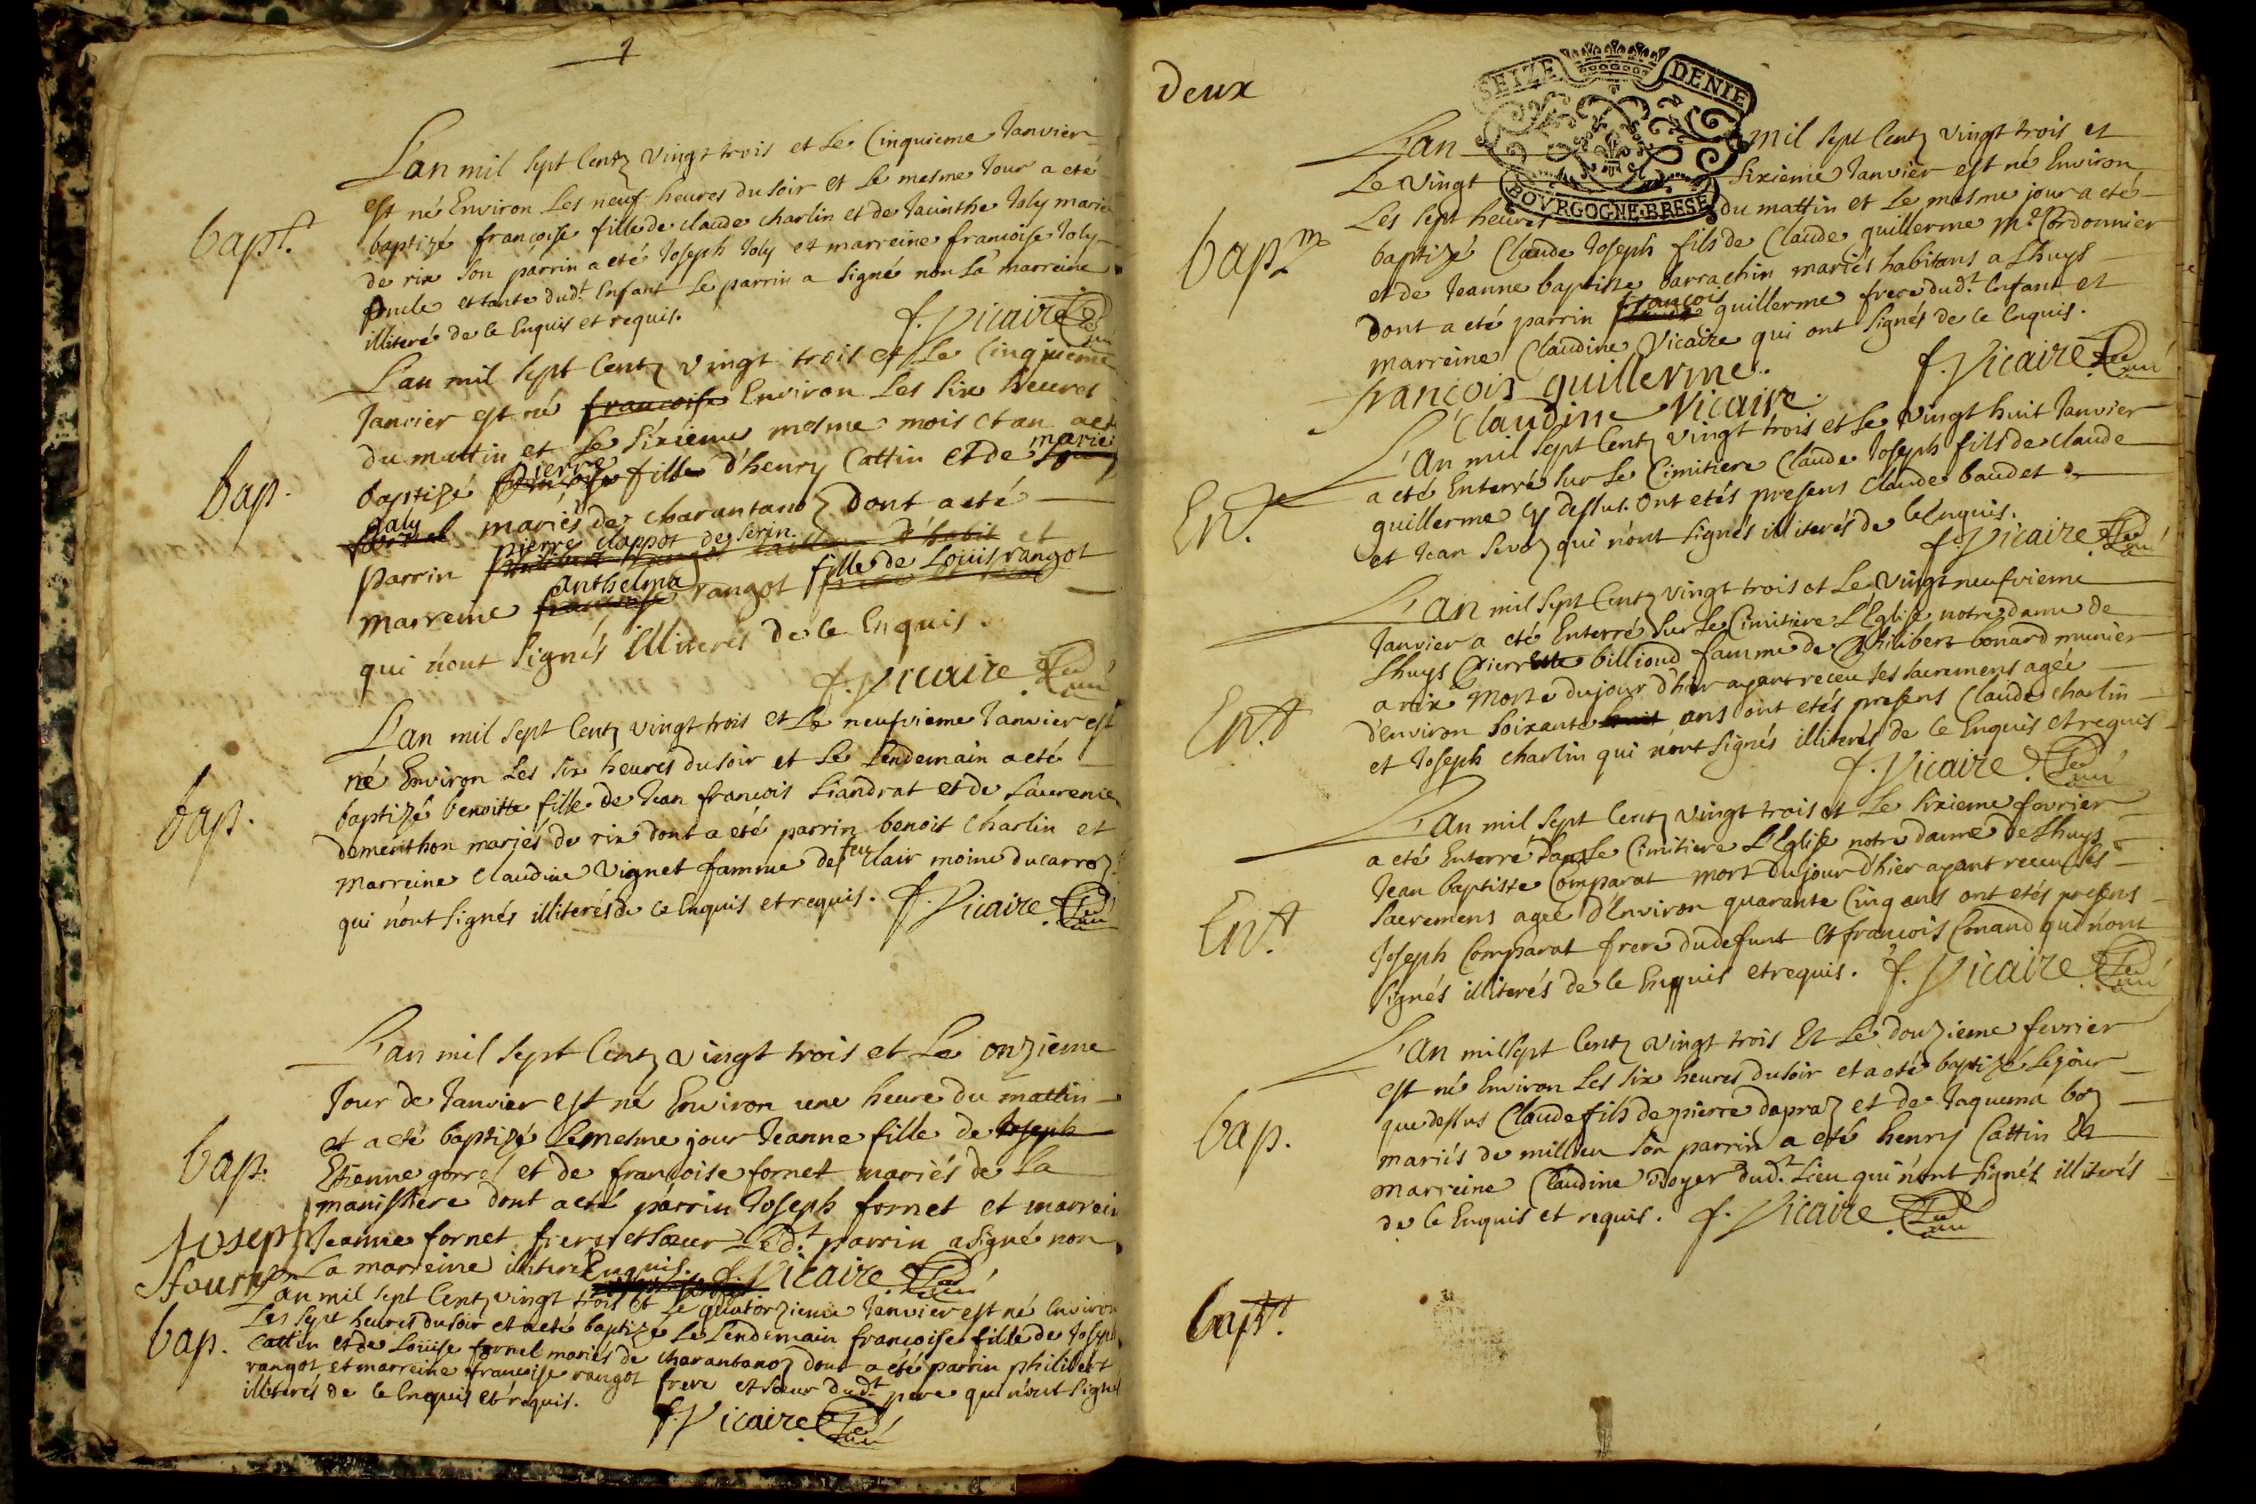 1
L'an mil sept Centz vingt trois et Le Cinquieme Janvier
est né Environ Les neuf heures du soir et Le mesme Jour a eté
bapt.t
baptizé françoise fille de claude charlin et de Jacinthe Joly mariés
de rix son parrin a eté Joseph Joly et marreine francoise Joly
oncle et tante dud.t Enfant Le parrin a signé non La marreine
illiteré de ce Enquis et requis.
f. Vicaire Curé
L'an mil sept Centz vingt trois et Le Cinquieme
Janvier est né francoise Environ Les six heures
du mattin et Le sixieme mesme mois et an a eté
bap.
baptizé pierre fille d'henry Cattin et de marie
galy fornel mariés de charantanoz dont a eté
pierre clappot de serin
parrin philibert d'habit et
marreine anthelma francoise rangot fille de Louis rangot
qui n'ont signés illiterés de ce Enquis.
f. Vicaire Curé
L'an mil sept Centz vingt trois et Le neufvieme Janvier est
né Environ Les six heures du soir et Le Lendemain a eté
bap.
baptizé benoitte fille de Jean francois Liandrat et de Laurence
demerithon mariés de rix dont a eté parrin benoit Charlin et
marreine Claudine Vignet famme de feu clair moine du carroz
qui n'ont signés illiterés de ce Enquis et requis. f. Vicaire Curé
L'an mil sept Centz vingt trois et Le onzieme
Jour de Janvier est né Environ une heure du mattin
et a eté baptizé Le mesme jour Jeanne fille de Joseph
bap.
Etienne gorrel et de françoise fornet mariés de La
manissiere dont a eté parrin Joseph fornet et marreine
Joseph
Jeanne fornet frere et sœur Led.t parrin a signé non
fournet
La marreine illiteré Enquis. f. Vicaire Curé
L'an mil sept Centz vingt trois et Le quatorzieme Janvier est né Environ
Les sept heures du soir et a eté baptizé Le Lendemain francoise fille de Joseph
bap.
Cattin et de Louise fornel mariés de charantanoz dont a eté parrin philibert
rangot et marreine francoise rangot frere et sœur dud.t pere qui n'ont signé
illiterés de ce Enquis et requis.
f. Vicaire Curé
Deux
SEIZE DENIE
BOVRGOGNE·BRESE
L'an mil sept Centz vingt trois et
Le vingt sixieme Janvier est né Environ
Les sept heures du mattin et Le mesme jour a eté
bap.m
baptizé Claude Joseph fils de Claude guillerme M.e Cordonnier
et de Jeanne baptiste barrachin mariés habitans a Lhuys
dont a eté parrin françois guillerme frere dud.t Enfant et
marreine Claudine Vicaire qui ont signés de ce Enquis.
françois guillerme.
f. Vicaire Curé
Claudine Vicaire.
L'an mil sept Centz vingt trois et Le vingt huit Janvier
a eté Enterré sur Le Cimitiere Claude Joseph fils de claude
En.t
guillerme cy dessus. ont etés presens Claude baudet
et Jean Sevoz qui n'ont signés illiterés de ce Enquis.
f. Vicaire Curé
L'an mil sept Centz vingt trois et Le vingt neufvieme
Janvier a eté Enterré sur Le Cimitiere L'Eglise notre dame de
Lhuys pierrette billioud famme de philibert bonard munier
En.t
a rix morte du jour d'hier ayant receu ses sacremens agée
d'environ soixante huit ans ont etés presens Claude charlin
et Joseph charlin qui n'ont signés illiterés de ce Enquis et requis
f. Vicaire Curé
L'an mil sept Centz vingt trois et Le sixieme fevrier
a eté Enterré dans Le Cimitiere L'Eglise notre dame de Lhuys
Jean baptiste Comparat mort du jour d'hier ayant receu ses
En.t
sacremens agee d'Environ quarante Cinq ans ont etés presens
Joseph Comparat frere du defunt et francois Conand qui n'ont
signés illiterés de ce Enquis et requis. f. Vicaire Curé
L'an mil sept Centz vingt trois Et Le douzieme fevrier
est né Environ Les six heures du soir et a eté baptizé Le jour
que dessus Claude fils de pierre dapraz et de Jaquema boz
bap.
mariés de millieu son parrin a eté henry Cattin et
marreine Claudine Royer dud.t Lieu qui n'ont signés illiterés
de ce Enquis et requis. f. Vicaire Curé
bapt.t